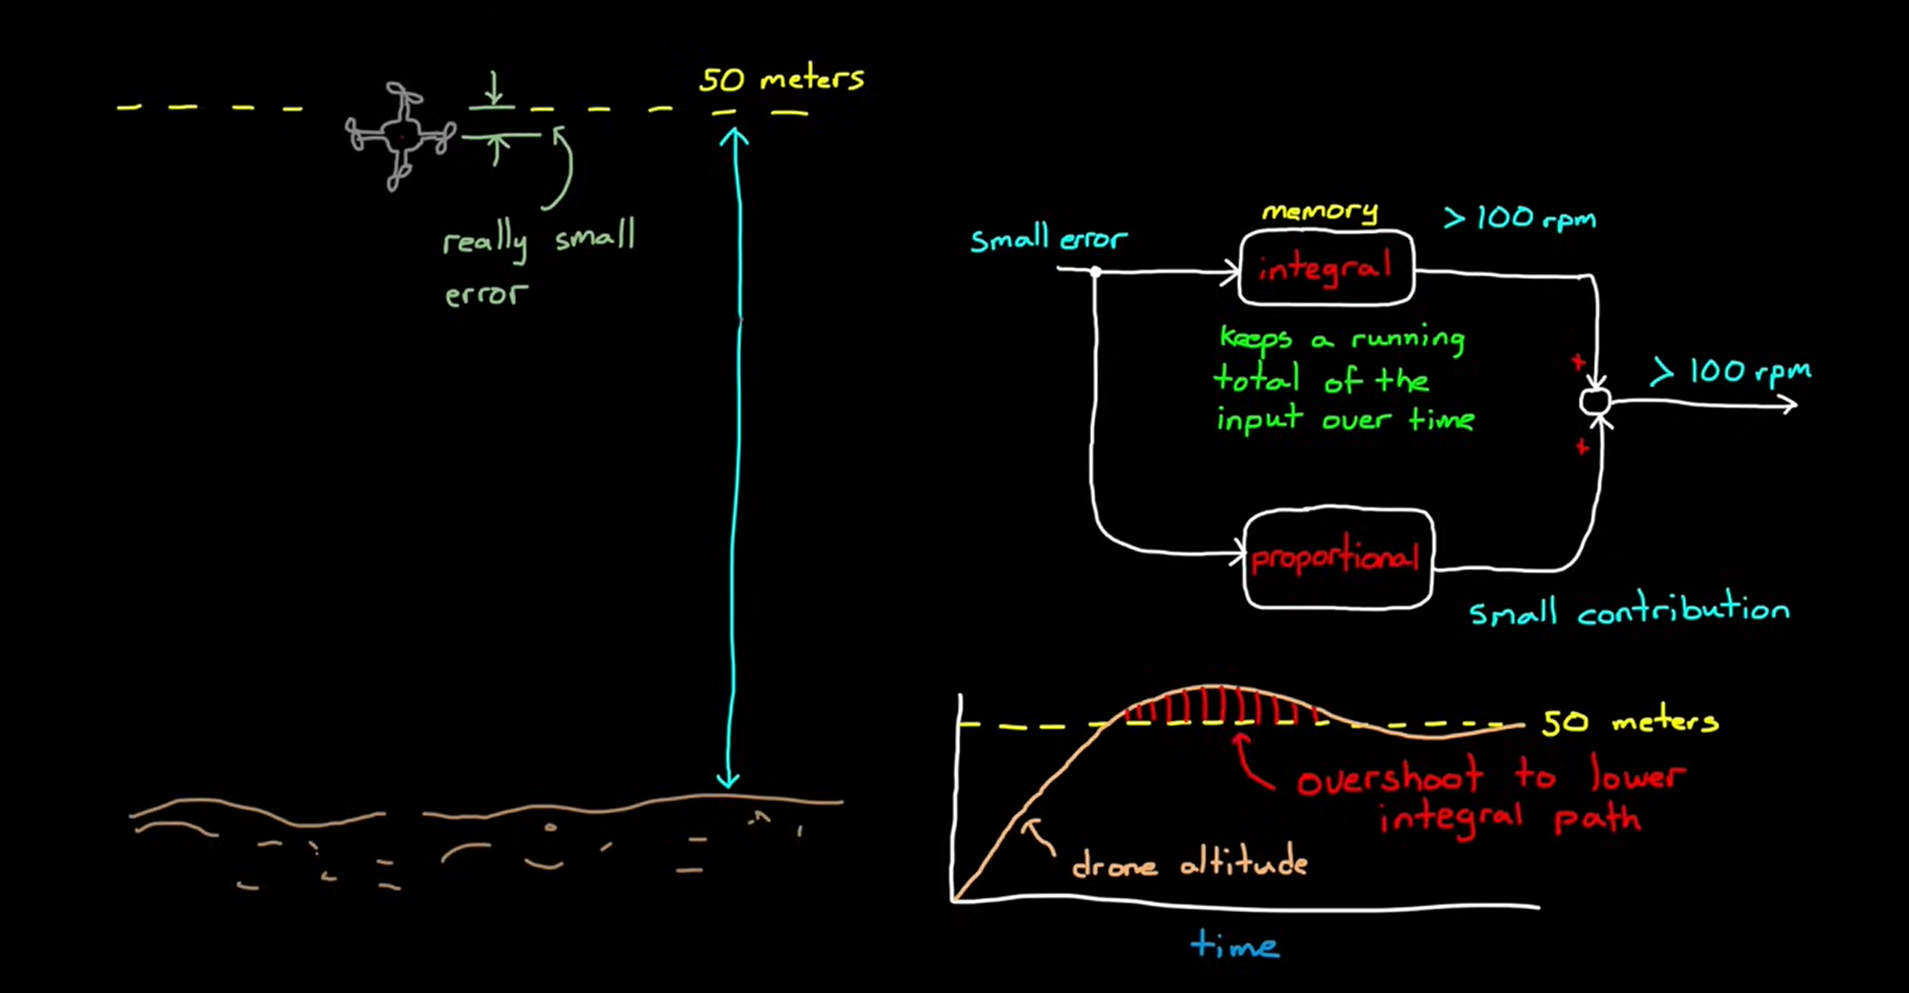 50 meters
really small
error
small error
memory
integral
> 100 rpm
keeps a running
total of the
input over time
+
+
> 100 rpm
proportional
small contribution
50 meters
overshoot to lower
integral path
drone altitude
time